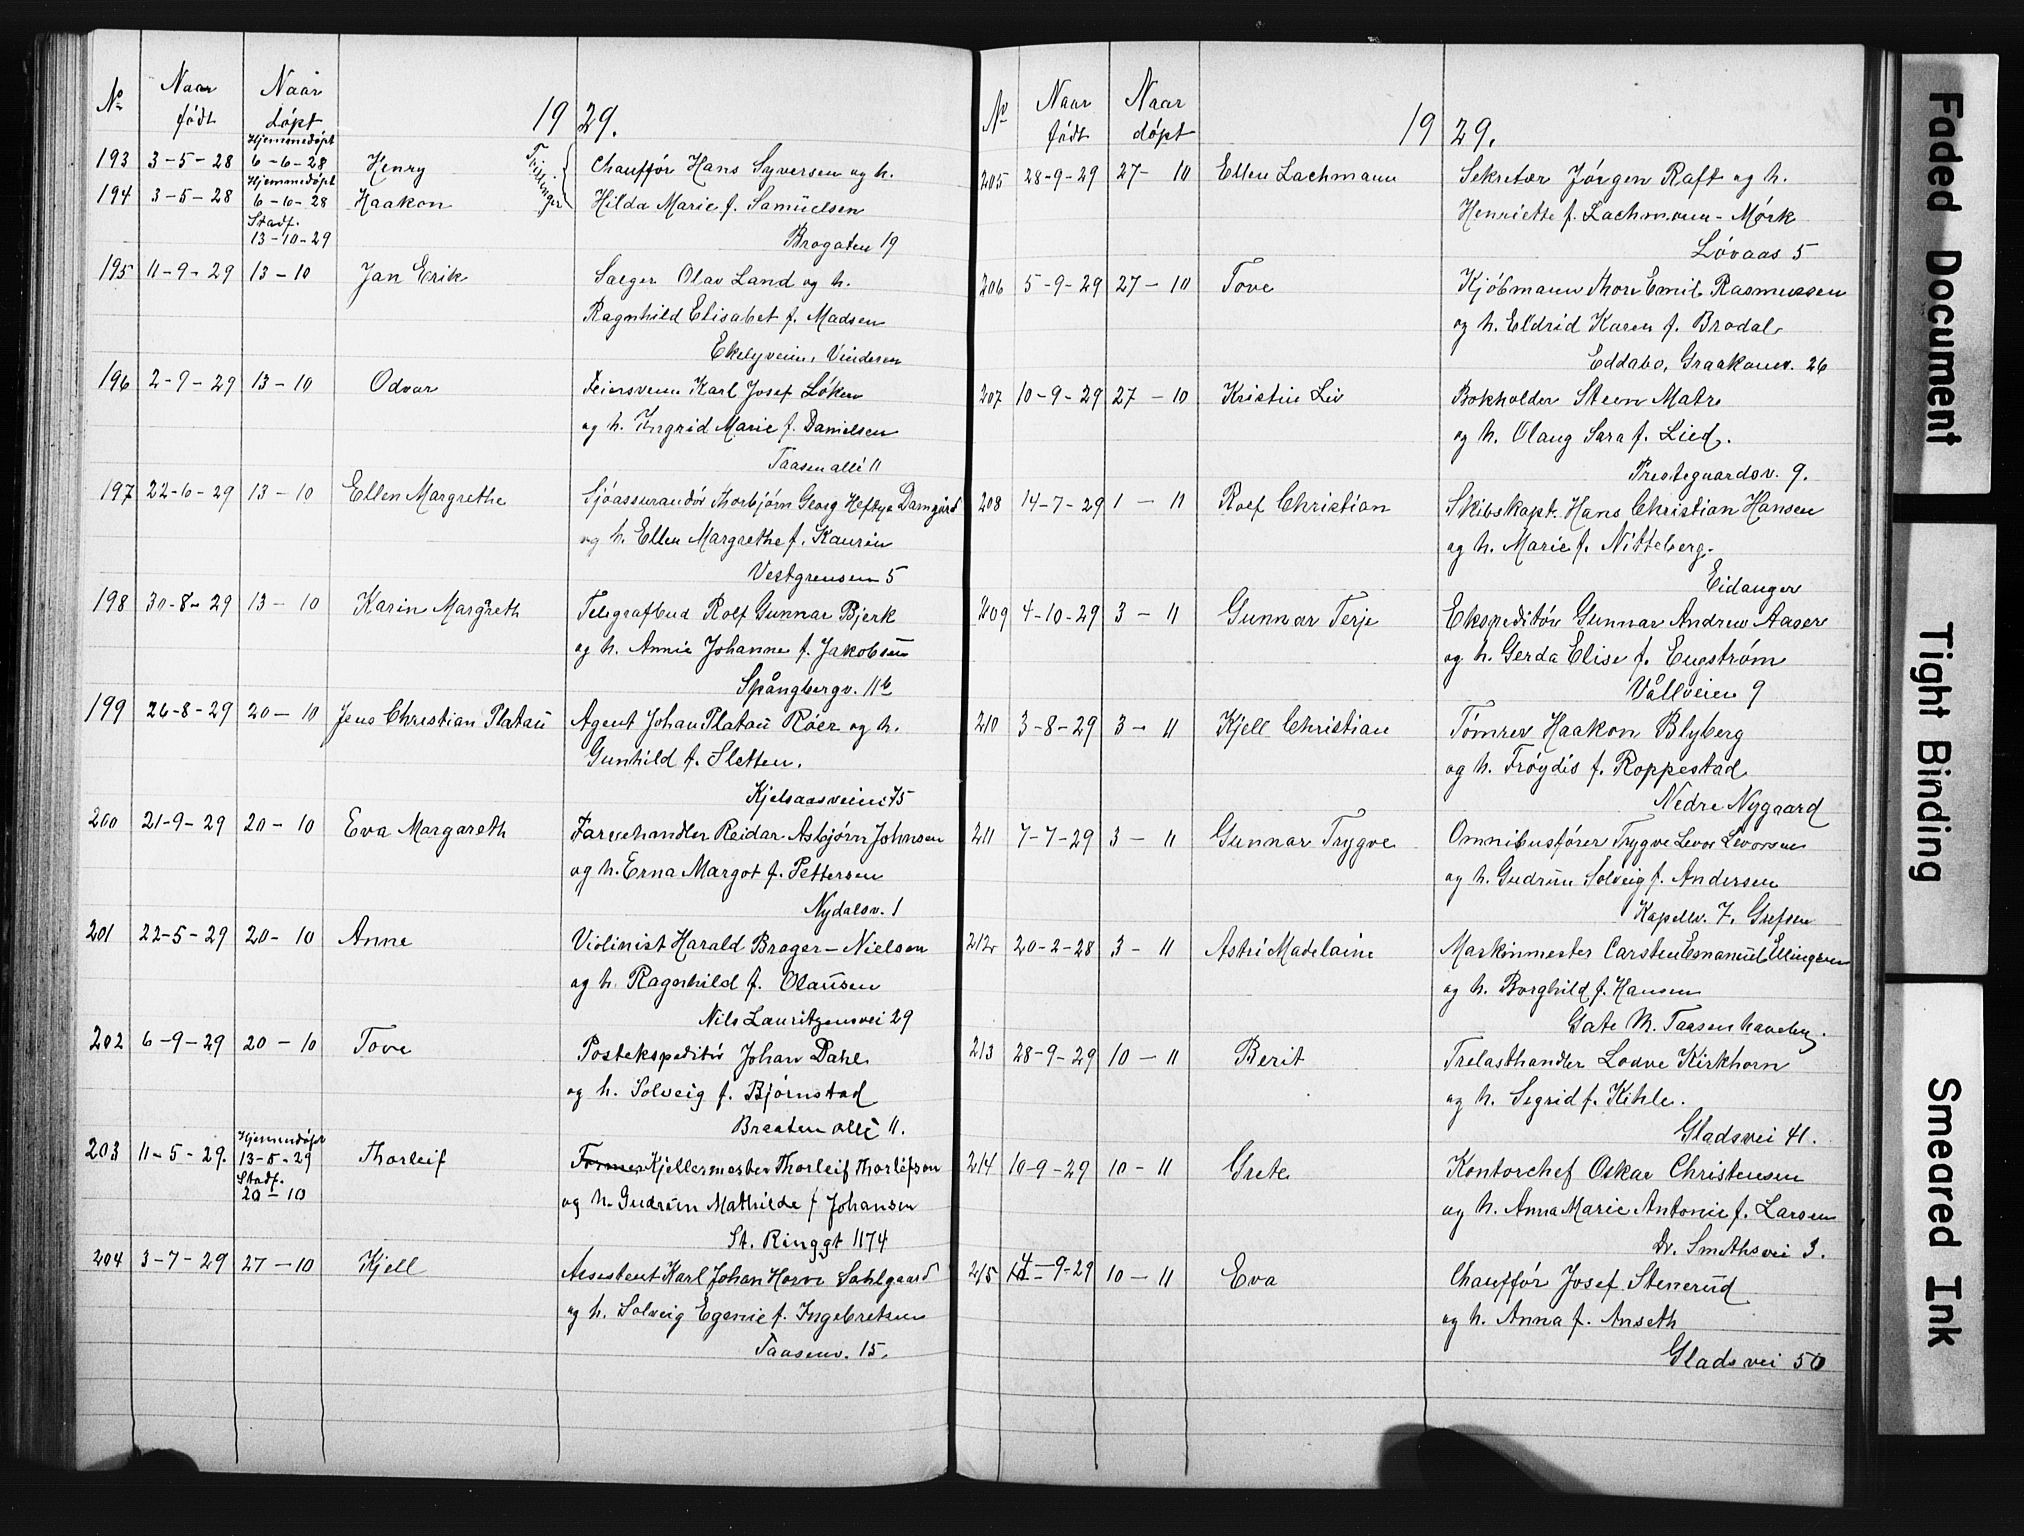 No Naar født Naar døpt 19 29.
193 3-5-28 Hjemmedøpt 6-6-28 Henry Tvillinger Chauffør Hans Syversen og h.
194 3-5-28 Hjemmedøpt 6-6-28 Haakon Hilda Marie f. Samuelsen
Stadf. 13-10-29 Brogaten 19
195 11-9-29 13-10 Jan Erik Sælger Olav Land og h.
Ragnhild Elisabet f. Madsen
Ekelyveien, Vinderen
196 2-9-29 13-10 Odvar Feiersvenn Karl Josef Løken
og h. Ingrid Marie f. Danielsen
Taasen allé 11
197 22-6-29 13-10 Ellen Margrethe Sjøassurandør Thorbjørn Georg Heftye Damgård
og h. Ellen Margrethe f. Kaurin
Vestgrensen 5
198 30-8-29 13-10 Karin Margreth Telegrafbud Rolf Gunnar Bjerk
og h. Annie Johanne f. Jakobsen
Spångbergv. 11b
199 26-8-29 20-10 Jens Christian Platau Agent Johan Platau Röer og h.
Gunhild f. Sletten.
Kjelsaasveien 75
200 21-9-29 20-10 Eva Margareth Farvehandler Reidar Asbjørn Johnsen
og h. Erna Margot f. Pettersen
Nydalsv. 1
201 22-5-29 20-10 Anne Violinist Harald Brager-Nielsen
og h. Ragnhild f. Olausen
Nils Lauritzensvei 29
202 6-9-29 20-10 Tove Postekspeditør Johan Dahl
og h. Solveig f. Bjørnstad
Braaten allé 11.
203 11-5-29. Hjemmedøpt 13-5-29 Thorleif Former Kjellermester Thorleif Thorleifson
Stadf. 20-10 og h. Gudrun Mathilde f Johansen
St. Ringgt 1174
204 3-7-29 27-10 Kjell Assistent Karl Johan Horve Sahlgaard
og h. Solveig Egenie f. Ingebretsen
Taasenv. 15.
No Naar født Naar døpt 19 29.
205 28-9-29 27-10 Ellen Lachmann Sekretær Jørgen Raft og h.
Henriette f. Lachmann-Mørk
Løvaas 5
206 5-9-29 27-10 Tove Kjøbmann Thore Emil Rasmussen
og h. Eldrid Karen f. Brodal
Eddabo, Graakamv. 26
207 10-9-29 27-10 Kristin Liv Bokholder Steen Matre
og h. Olaug Sara f. Lied.
Prestegaardsv. 9.
208 14-7-29 1-11 Rolf Christian Skibskapt. Hans Christian Hansen
og h. Marie f. Nitteberg.
Eidanger
209 4-10-29 3-11 Gunnar Terje Ekspeditør Gunnar Andrew Aaser
og h. Gerda Elise f. Engstrøm
Vållveien 9
210 3-8-29 3-11 Kjell Christian Tømrer Haakon Blyberg
og h. Frøydis f. Roppestad
Nedre Nygaard
211 7-7-29 3-11 Gunnar Trygve Omnibusfører Trygve Levor Levorsen
og h. Gudrun Solveig f. Andersen
Kapellv. 7, Grefsen
212 20-2-28 3-11 Astri Madelaine Maskinmester Carsten Emanuel Ellingsen
og h. Borghild f. Hansen
Gate M. Taasen haveby.
213 28-9-29 10-11 Berit Trelasthandler Lodve Kirkhorn
og h. Segrid f. Kihle.
Gladsvei 41.
214 10-9-29 10-11 Grete Kontorchef Oskar Christensen
og h. Anna Marie Antonie f. Larsen
Dr. Smithsvei 3.
215 4-9-29 10-11 Eva Chauffør Josef Stenerud
og h. Anna f. Anseth
Gladsvei 50
Faded Document
Tight Binding
Smeared Ink